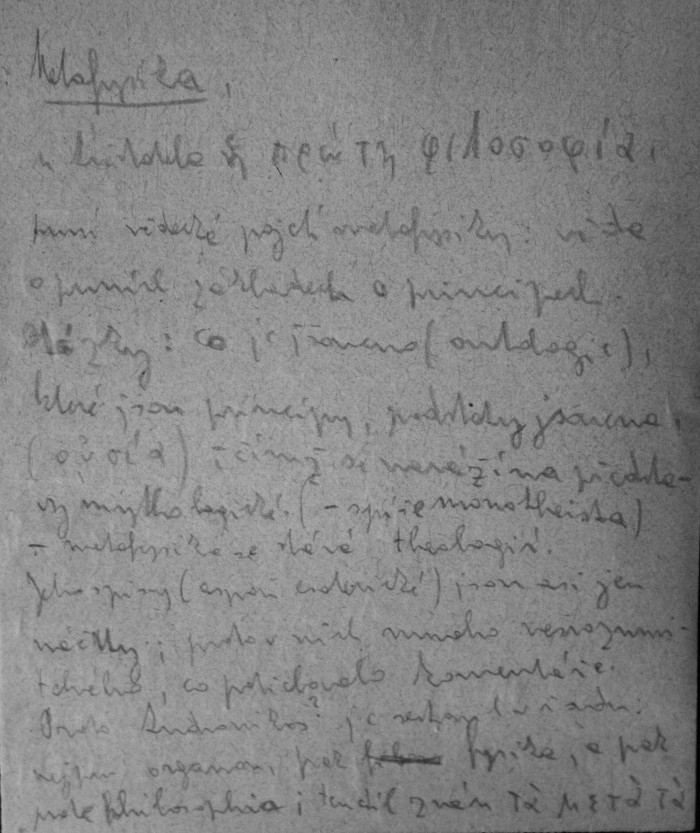 Metafysika,
u Aristotela ἡ πρώτη φιλοσοφία,
první vědecké pojetí metafysiky: věda
o prvních základech a principech.
Otázky: co je jsoucno (ontologie),
které jsou principy, podstaty jsoucna,
(οὐσία) čímž se naráží na předsta-
vy mythologické. (– spíše monotheista)
– metafysika se stává theologií.
Jeho spisy (aspoň esoterické) jsou asi jen
náčrtky; proto v nich mnoho nesrozumi-
telného, co potřebovalo komentáře.
Proto Andronikos je v řadu:
nejprv organon, pak fysika, a pak
philosophia; τὰ μετὰ τὰ